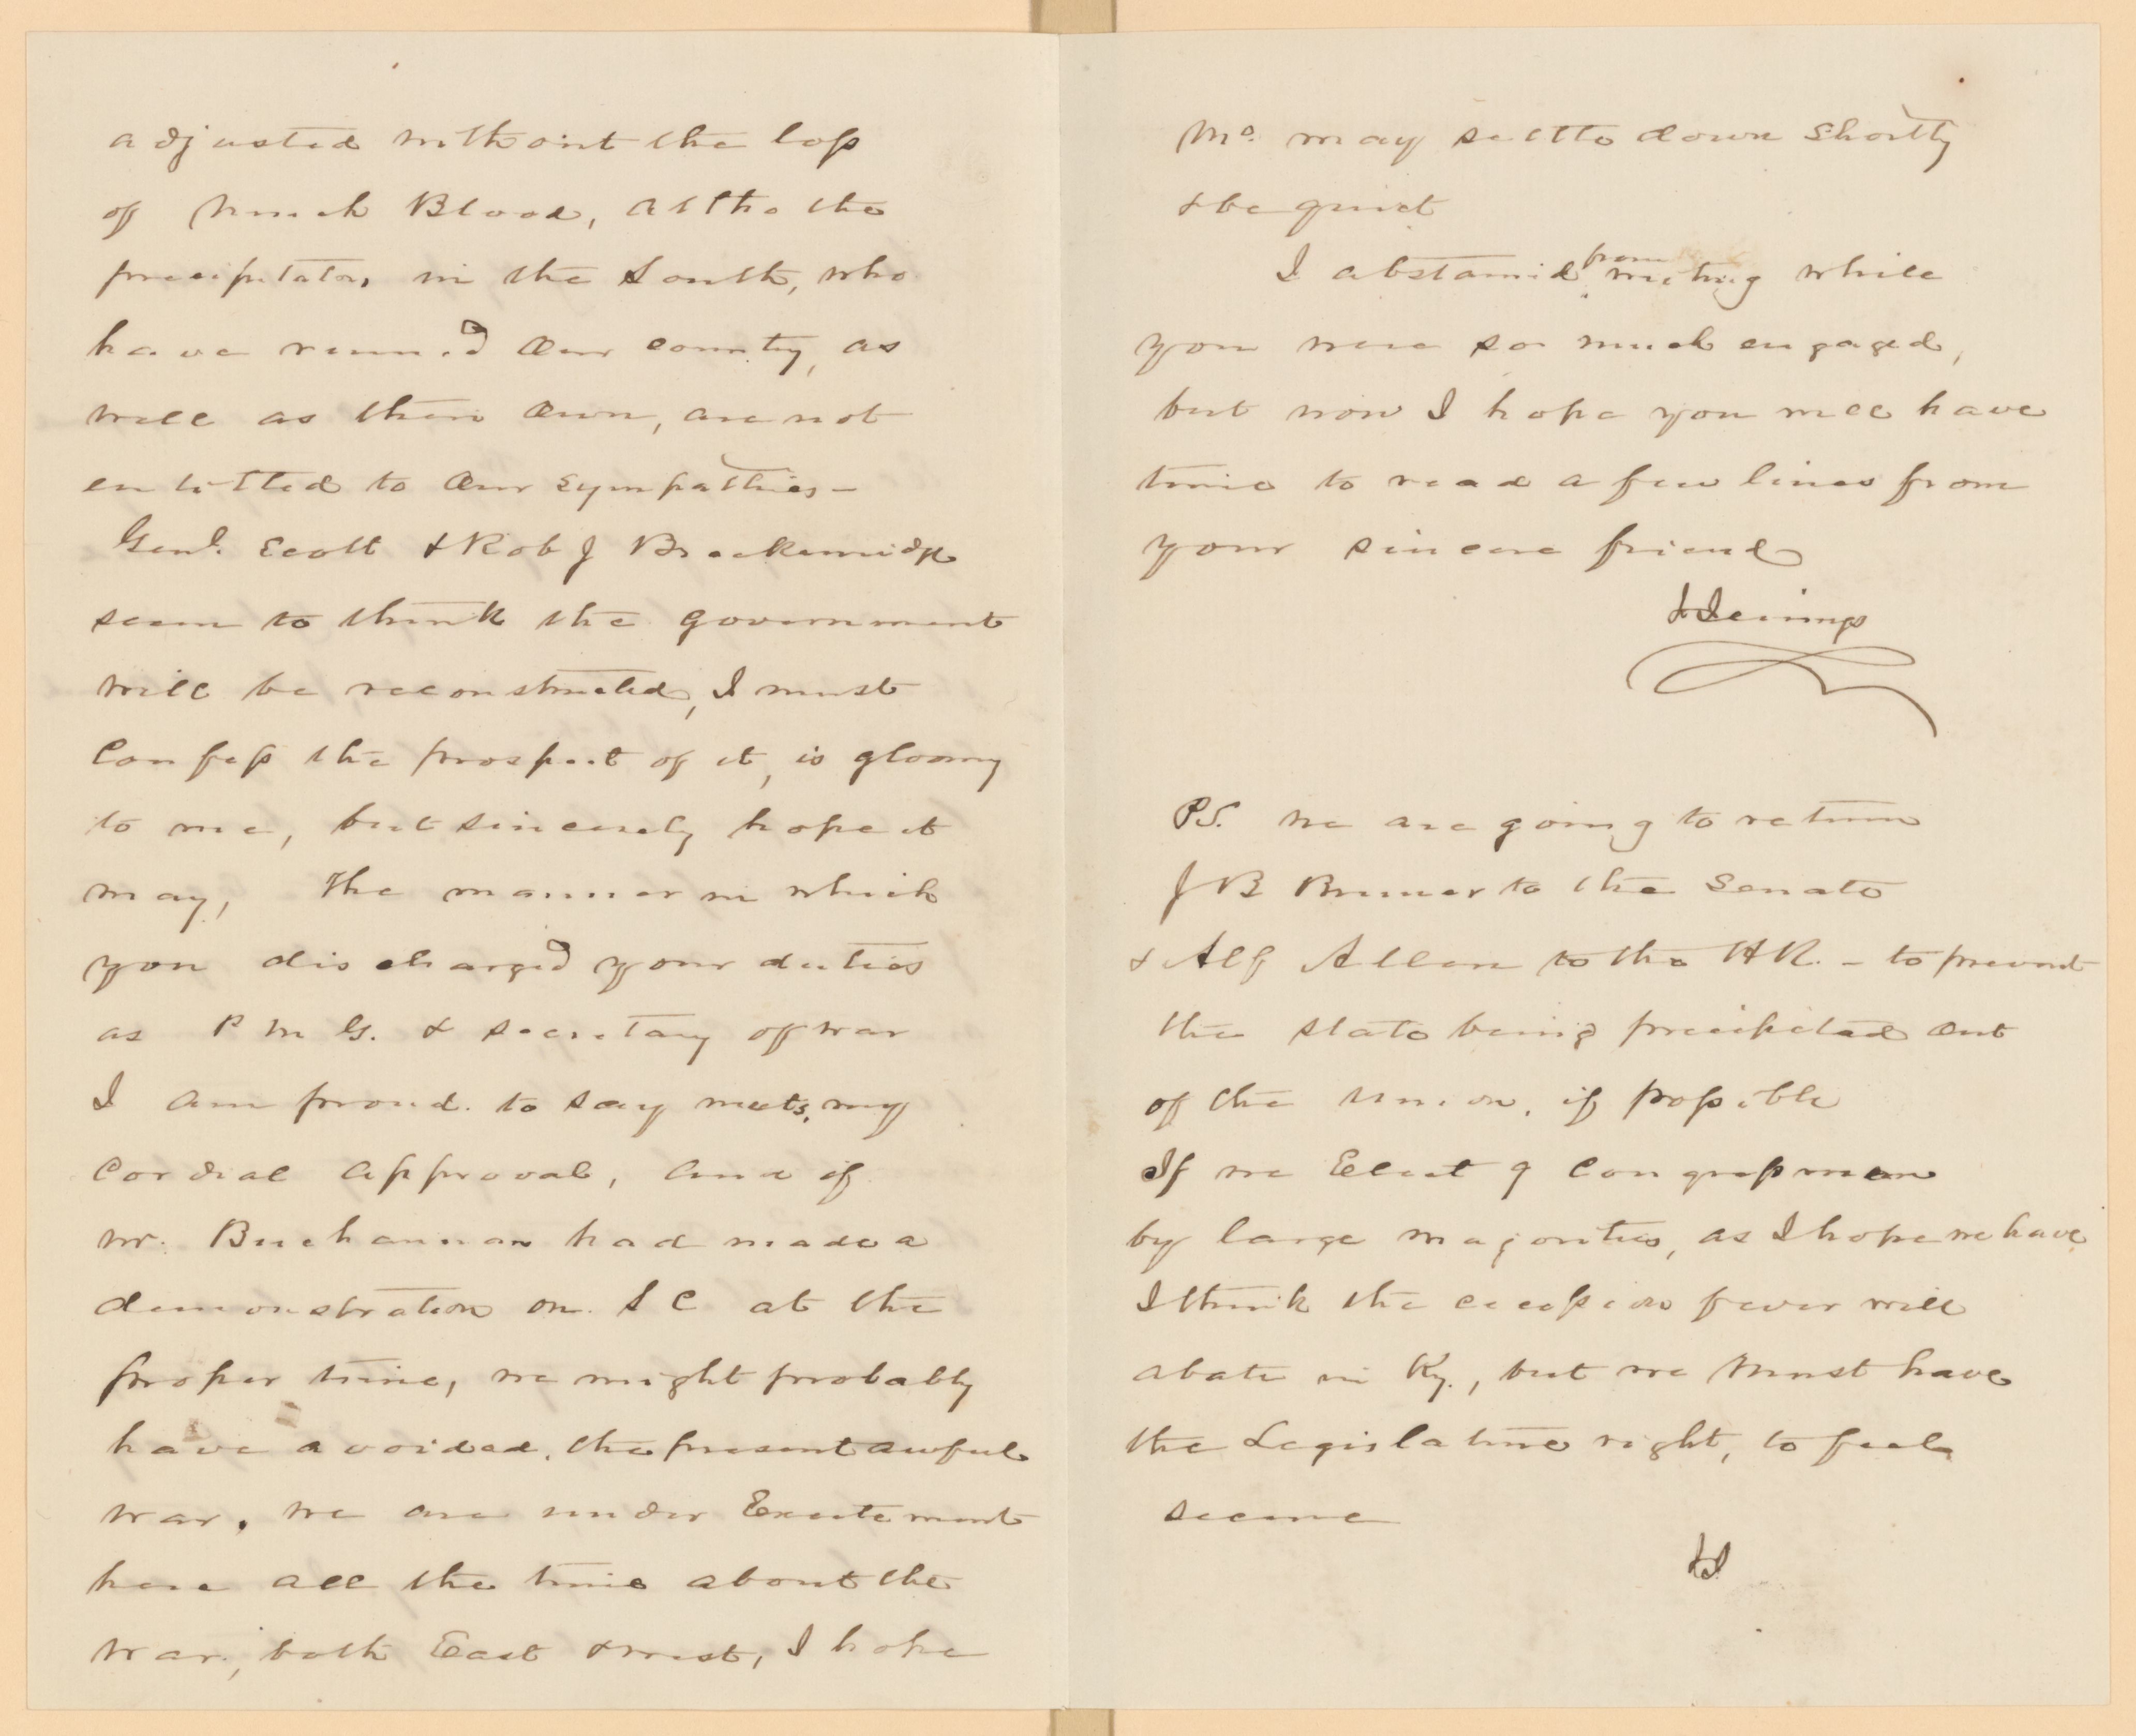 adjusted without the loss
of much Blood, altho the
precipitators in the South, who
have ruined our country, as
well as their own, are not
entitled to our sympathies -
Genl. Scott & Rob J Breckenridge
seem to think the government
will be reconstructed, I must
Confess the prospect of it, is gloomy
to me, but sincerely hope it
may, The manner in which
you discharged your duties
as P M G. & secretary of war
I am proud to say meets, my
Cordial approval, and if
Mr. Buchannan had made a
demonstration on S C at the
proper time, we might probably
have avoided, the present awful
war. we are under Excitement
here all the time about the
war, both East & west, I hope
Mo. may settle down shortly
& be quiet
I abstained from writing while
you were so much engaged,
but now I hope you will have
time to read a few lines from
your sincere friend
P.S. we are going to return
J B Bruner to the Senate
& Alf Allen to the HR. - to prevent
the state being precipitated out
of the union, if possible
If we Elect 9 Congressmen
by large majorities, as I hope we have
I think the cecession fever will
abate in Ky., but we must have
the Legislature right, to feel
secure